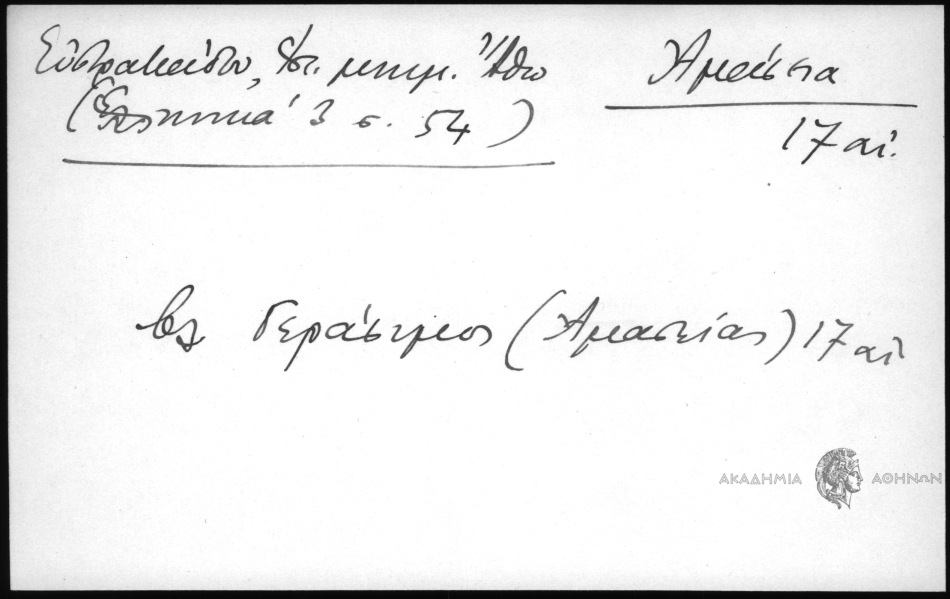 Εὐστρατιάδου, Ἱστ. μνημ. Ἄθω
(Ἑλληνικά 3 σ. 54)
Ἀμάσεια
17 αἰ.
βλ Γεράσιμος (Ἀμασείας) 17 αἰ
ΑΚΑΔΗΜΙΑ ΑΘΗΝΩΝ